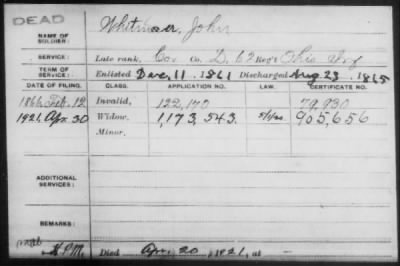 DEAD
NAME OF SOLDIER: Whitmoer, John
SERVICE: Late rank, Cor Co. D, 62 Reg't Ohio Inf
TERM OF SERVICE: Enlisted Dec, 11, 1861 Discharged Aug 23, 1865
DATE OF FILING. CLASS. APPLICATION NO. LAW. CERTIFICATE NO.
1866 Feb. 12 Invalid, 122,170 79,930
1921, Apr. 30 Widow, 1,173,543. 905,656
Minor,
ADDITIONAL SERVICES:
REMARKS:
Died Apr. 20, 1921, at —